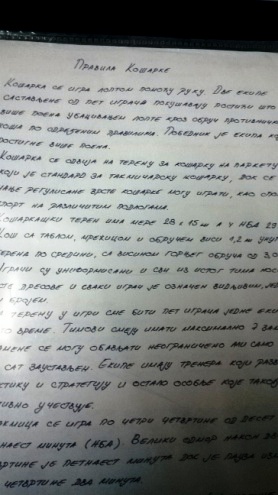 Правила Кошарке
Кошарка се игра лоптом помоћу руку. Две екипе
састављене од пет играча покушавају постићи што
више поена убацивањем лопте кроз обруч противничког
коша по одређеним правилима. Победник је екипа која
постигне више поена.
Кошарка се одвија на терену за кошарку на паркету
који је стандард за такмичарску кошарку, док се
мање регулисане врсте кошарке могу играти, као
спорт на различитим подлогама.
Кошаркашки терен има мере 28 x 15 m а у НБА
Кош са таблом, мрежицом и обручем виси 1,2 m
терена по средини, са висином горњег обруча од
Играчи су униформисани и сви из истог тима
дресове и сваки играч је означен видљивим,
бројем.
На терену у игри сме бити пет играча једне
време. Тимови смеју имати максимално
измене се могу обављати неограничено али само
сат заустављен. Екипе имају тренера који
тактику и стратегију и остало особље које такође
активно учествује.
се игра по четри четвртине од десет
минута (НБА). Велики одмор након
четвртине је петнаест минута док је пауза
четвртине два минута.